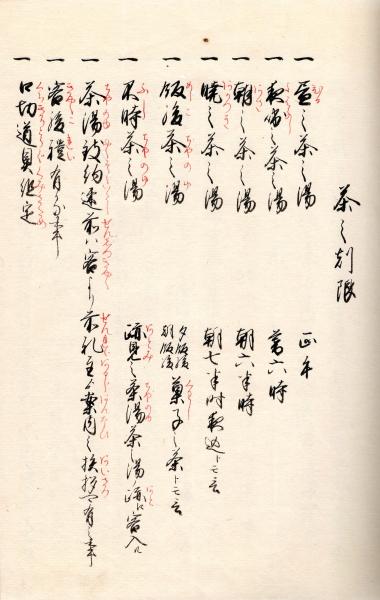 茶之刻限
一 昼之茶湯 正午
一 夜咄之茶湯 暮六時
一 朝之茶湯 朝六半時
一 暁之茶湯 朝七半時夜込トモ云
一 飯後茶之湯 夕飯後 朝飯後 菓子之茶トモ云
一 不時茶之湯 跡見之茶湯茶之湯ノ跡江客入ル
一 茶湯致約束前ハ客より前礼主より案内之挨拶有之事
一 客後禮有之事
一 口切道具組定